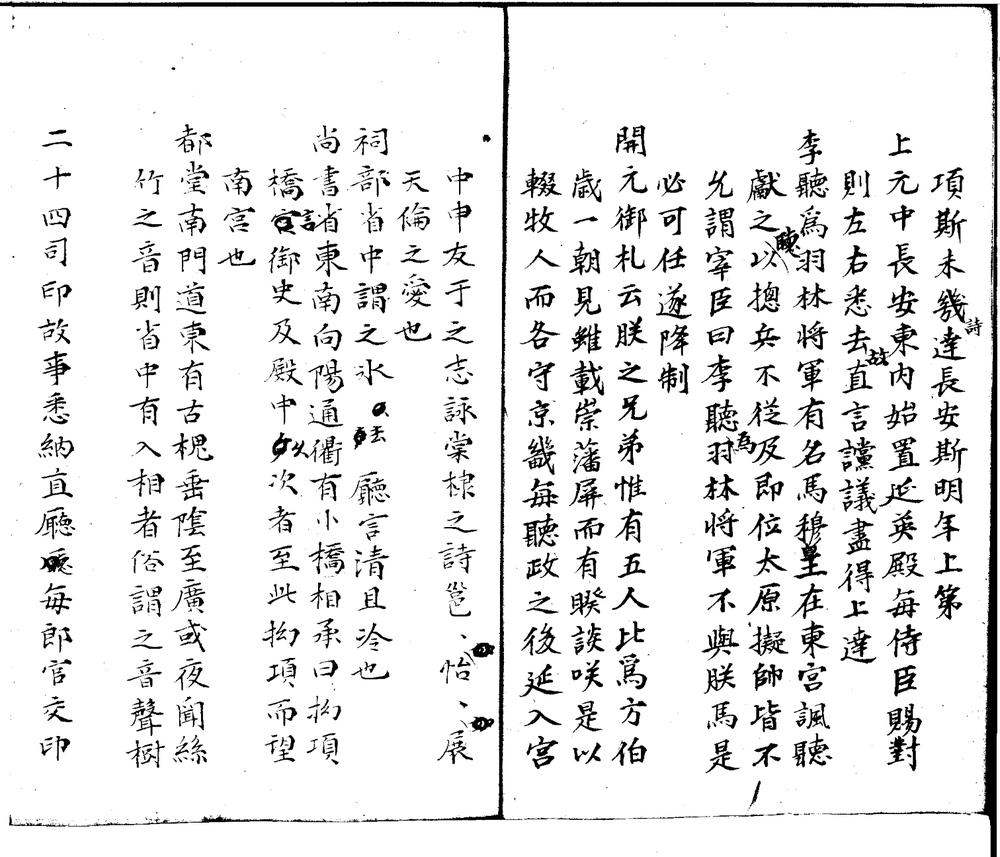 項斯未幾詩達長安斯明年上第
上元中長安東內始置延英殿每侍臣賜對
則左右悉去故直言讜議盡得上達
李聽爲羽林将軍有名馬穆皇在東宮諷聽
獻之聽以摠兵不從及即位太原擬帥皆不
允謂宰臣曰李聽爲羽林将軍不與朕馬是
必可任遂降制
開元御札云朕之兄弟惟有五人比爲方伯
歲一朝見雖載崇藩屏而有睽談咲是以
輟牧人而各守京畿每聽政之後延入宮
中申友于之志詠棠棣之詩邕、怡、展
天倫之愛也
祠部省中謂之氷廳言清且冷也
尚書省東南向陽通衢有小橋相承曰拗項
橋言御史及殿中以次者至此拗項而望
南宮也
都堂南門道東有古槐垂陰至廣或夜聞絲
竹之音則省中有入相者俗謂之音聲樹
二十四司印故事悉納直廳每郎官交印